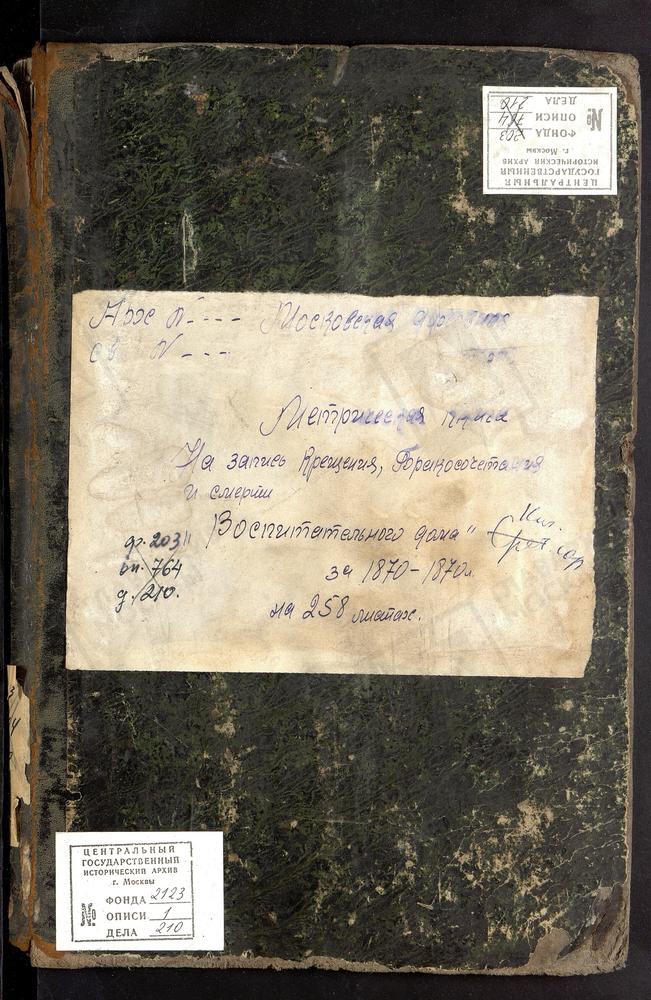 ЦЕНТРАЛЬНЫЙ
ГОСУДАРСТВЕННЫЙ
ИСТОРИЧЕСКИЙ АРХИВ
г. Москвы
№ ФОНДА 203
ОПИСИ 764
ДЕЛА 210
Арх N - - - - Московская
св N - - -
Метрическая книга
На запись Крещения, Бракосочетания
и смерти
"Воспитательного дома"
ф. 203
оп. 764
д. 210.
за 1870-1870г.
на 258 листах.
ЦЕНТРАЛЬНЫЙ
ГОСУДАРСТВЕННЫЙ
ИСТОРИЧЕСКИЙ АРХИВ
г. Москвы
№ ФОНДА 2123
ОПИСИ 1
ДЕЛА 210